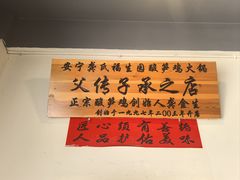 安宁龚氏福生园酸笋鸡火锅
父传子承之店
正宗酸笋鸡创始人龚金生
创始于一九九七年二00三年开店
匠心须有善结
人品护佑美味